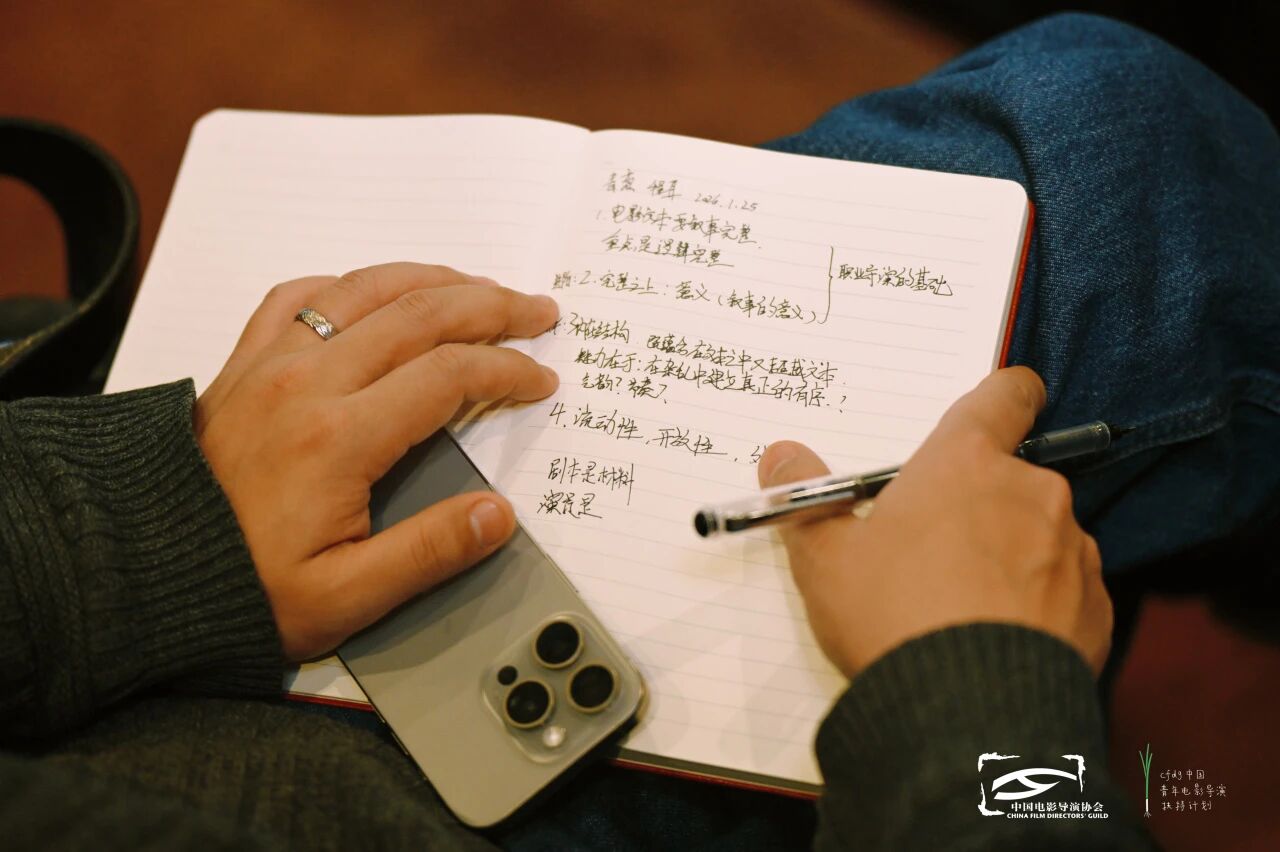 青葱 程耳 2026.1.25
1.电影文本要叙事完整.
重点是逻辑完整
2.完整之上:意义(叙事的意义)
职业导演的基础
3.神秘结构.隐匿在文本之中又超越文本.
能力在于:在杂乱中建立真正的有序.?
4.流动性,开放性,
剧本是材料
演员是
中国电影导演协会
CHINA FILM DIRECTORS' GUILD
cfdg中国
青年电影导演
扶持计划